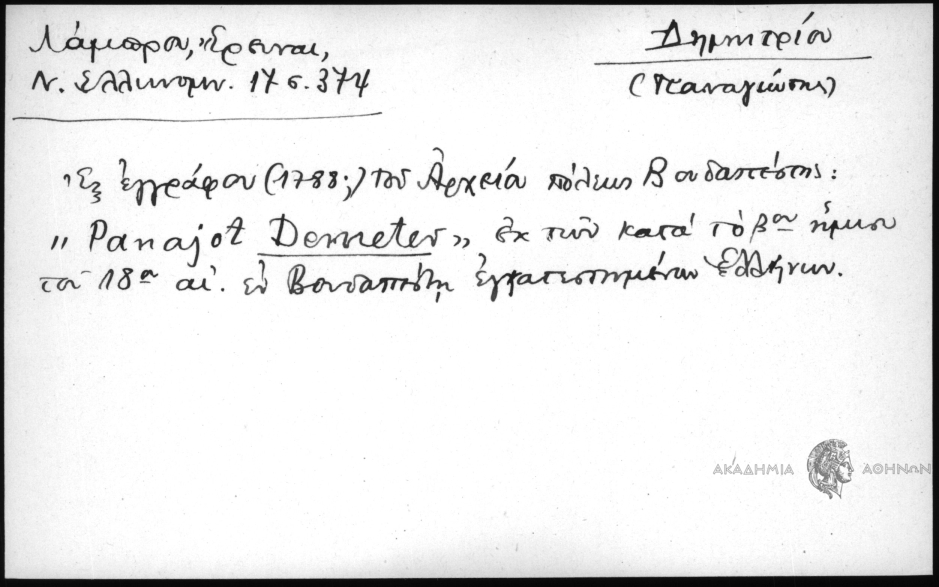 Λάμπρου, Ἔρευναι,
Ν. Ἑλληνομν. 17 σ. 374
Δημητρίου
(Παναγιώτης)
Ἐξ ἐγγράφου (1788;) τοῦ Ἀρχείου πόλεως Βουδαπέστης:
„Panajot Demeter„ ἐκ τῶν κατὰ τὸ βον ἥμισυ
τοῦ 18ου αἰ. ἐν Βουδαπέστῃ ἐγκατεστημένων Ἑλλήνων.
ΑΚΑΔΗΜΙΑ ΑΘΗΝΩΝ